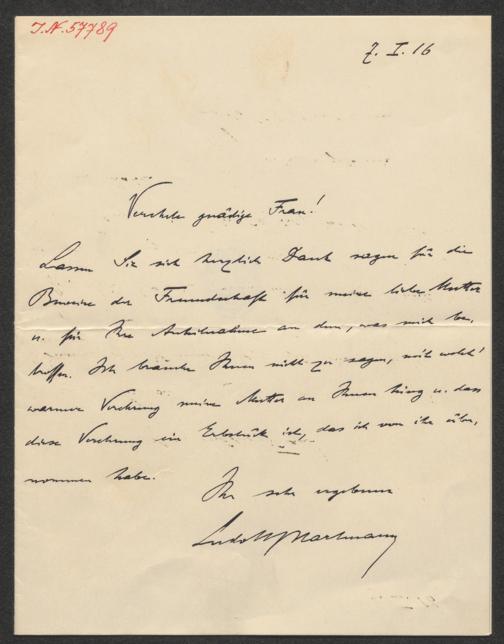 I.N. 57789
7. I. 16
Verehrte gnädige Frau!
Lassen Sie sich herzlich Dank sagen für die
Beweise der Freundschaft für meine liebe Mutter
u. für Ihre Anteilnahme an dem, was mich be-
troffen. Ich brauche Ihnen nicht zu sagen, mit welch'
warmer Verehrung meine Mutter an Ihnen hieng u. dass
diese Verehrung ein Erbstück ist, das ich von ihr über-
nommen habe.
Ihr sehr ergebener